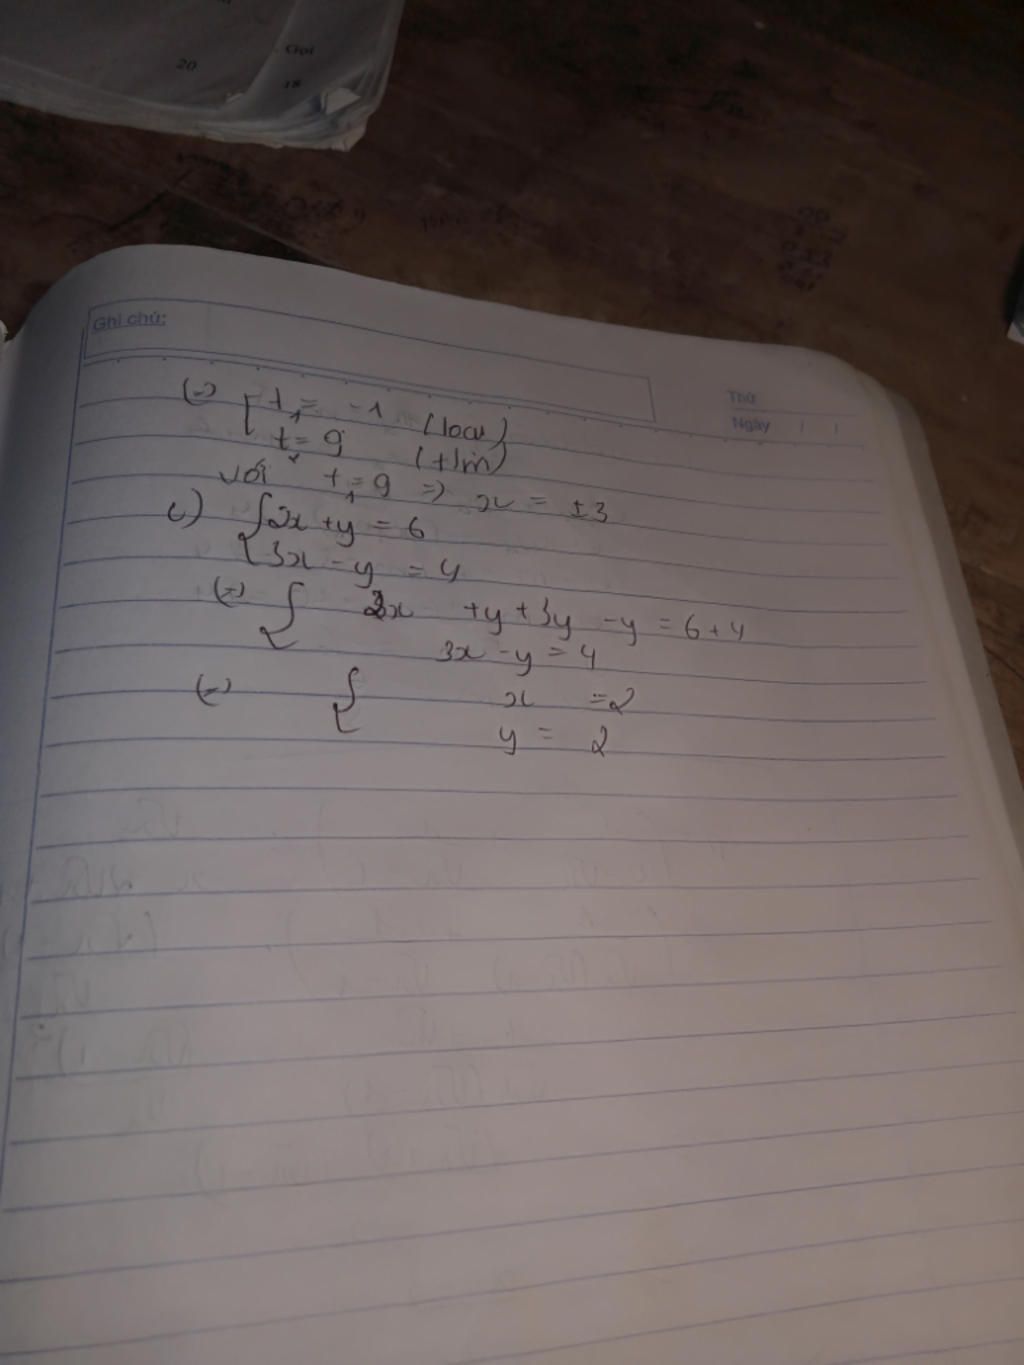 Gọi
20
18
Ghi chú:
Thứ
Ngày / /
(=) [ t₁ = -1 (loại)
t₂ = 9 (t/m)
với t₁ = 9 => x = ±3
c) { 2x + y = 6
3x - y = 4
(=) { 2x + y + 3y - y = 6 + 4
3x - y = 4
(=) { x = 2
y = 2